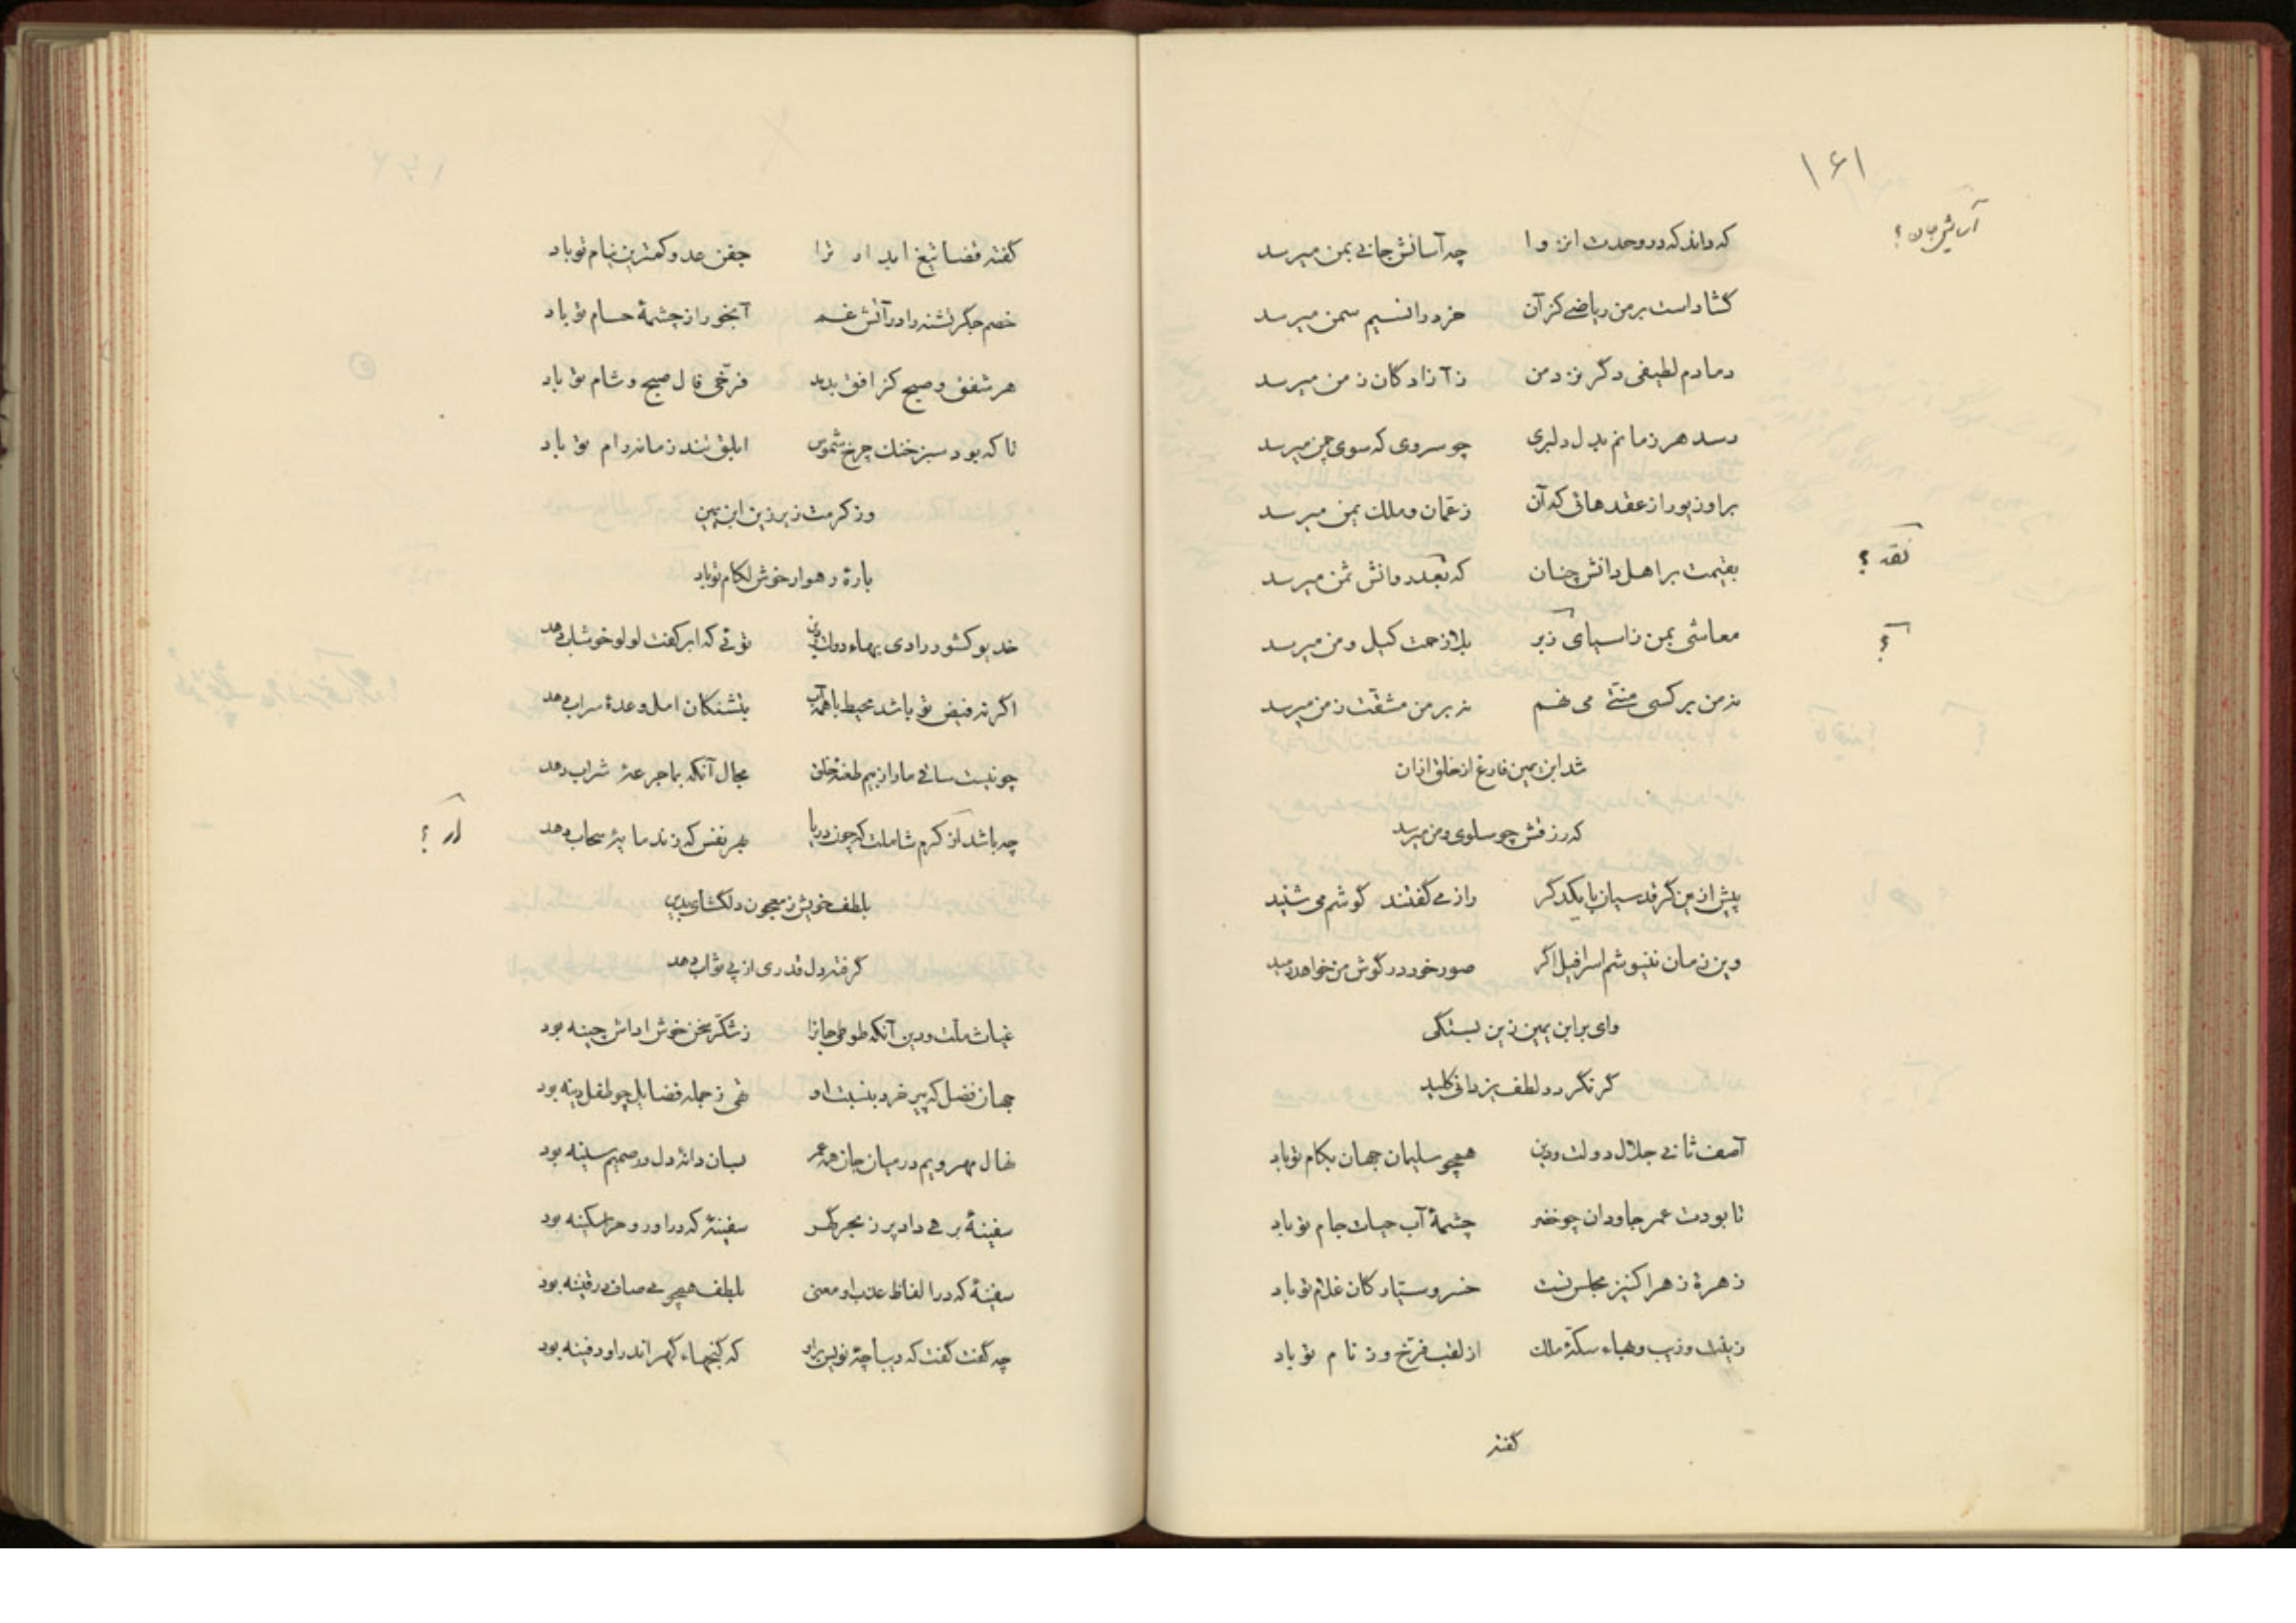 ۱۶۱
که داند که در وحدت انزوا چه آسانش جانی بمن میرسد
آسایش جان ؟
گشاد است بر من ریاضی کز آن خرد را نسیم سمن میرسد
دمادم لطیفی دگر نزد من ز آزادگان زمن میرسد
رسد هر زمانم بدل دلبری چو سروی که سوی چمن میرسد
بر او زیور از عقدهائی که آن ز عمان و ملک یمن میرسد
بقیمت بر اهل دانش چنان که بعدد وانش ثمن میرسد
نقد ؟
معاشی بمن ز اسیای زبر بلا زحمت کیل و من میرسد
؟
نه من بر کسی منتی می نهم نه بر من مشقت ز من میرسد
شد ابن یمین فارغ از خلق ازان
که رزقش چو سلوی و من میرسد
پیش ازین گر قدسیان با یکدگر راز می گفتند گوشم می شنید
وین زمان ننیوشم اسرافیل اگر صور خود در گوش من خواهد دمید
وای بر ابن یمین زین بستگی
گر نگردد لطف یزدانی کلید
آصف ثانی جلال دولت و دین همچو سلیمان جهان بکام تو باد
تا بودت عمر جاودان چو خضر چشمهٔ آب حیات جام تو باد
زهرهٔ زهرا کنیز مجلس تست خسرو سیارگان غلام تو باد
زینت و زیب و بهاء سکهٔ ملک از لقب فرخ و ز نام تو باد
گفته
گفته قضا تیغ ابدار ترا جفن عدو کمترین نیام تو باد
خصم جگر تشنه را در آتش غم آبخور از چشمهٔ حسام تو باد
هر شفق و صبح کز افق بدمد فرخی فال صبح و شام تو باد
تا که بود سبز خنک چرخ شموس ابلق تند زمانه رام تو باد
وز کرمت زیر زین ابن یمین
بارهٔ رهوار خوش لکام تو باد
خدیو کشور رادی بهاء دولت و دین توئی که ابر کفت لولو خوشاب دهد
اگر نه فیض تو باشد محیط با همه آب بتشنکان امل وعدهٔ سراب دهد
چو نیست ساقی ما را ز بیم طعنهٔ خلق مجال آنکه بما جرعهٔ شراب دهد
چه باشد از کرم شاملت که چون دریا بهر نفس که زند مایهٔ سحاب دهد
ار ؟
بلطف خویش ز معجون دلگشای بدین
گرفته دل قدری از پی ثواب دهد
غیاث ملت و دین آنکه طوطی جانرا ز شکر سخن خوش اداش چینه بود
جهان فضل که پیر خرد بنسبت او تهی ز جمله فضایل چو طفل دینه بود
نهال مهر ویم در میان جان همه عمر بسان دانهٔ دل در صمیم سینه بود
سفینهٔ برهی داد پر ز بحر گهر سفینهٔ که در او روح را سکینه بود
سفینهٔ که در الفاظ عذب او معنی بلطف همچو می صاف در قنینه بود
چه گفت گفت که دیباچهٔ نویس براو که گنجهاء گهر اندر او دفینه بود